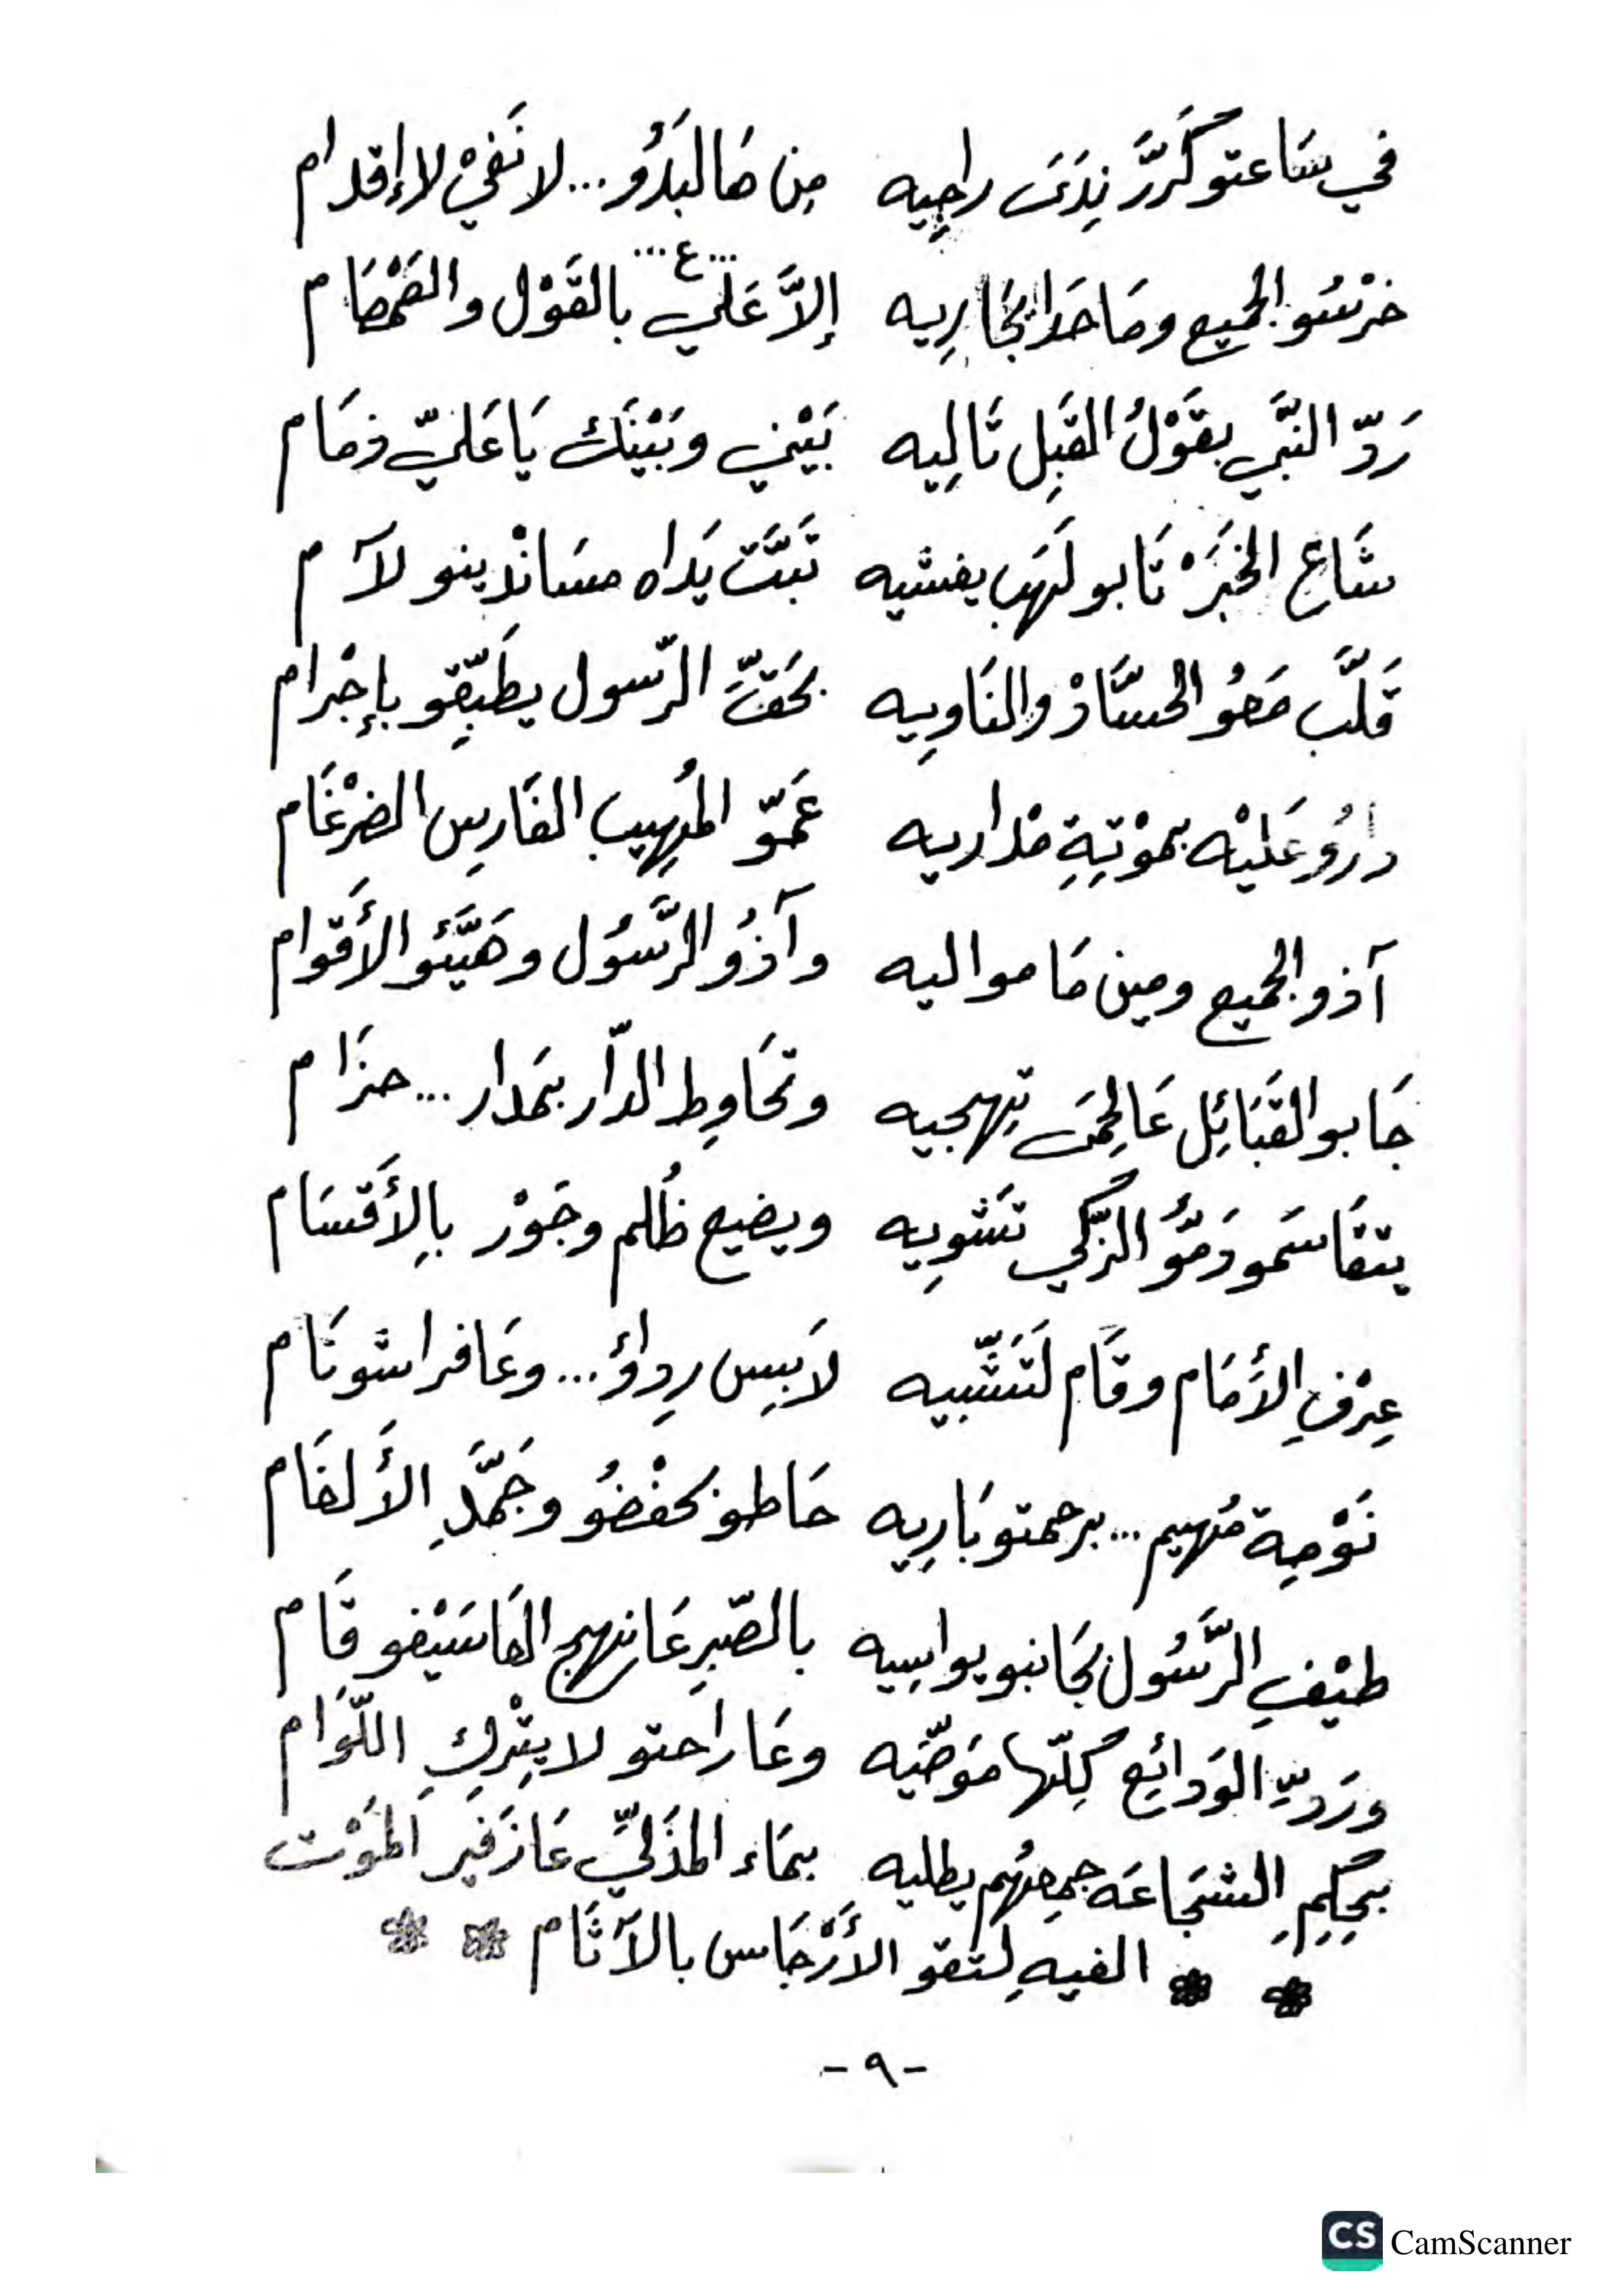 في سَاعتو كَرَّرَ نِدَىَ راجِيه    مِن هَالبَدَؤُ ... لا نَفيْ لا إقدام
... ع ...
خرْسُو الجميع ومَا حَدا يجَارِيه    إلاَّ عَلي بالقَوْل والصَمْصَام
رَدّ النبَّي بقَوْلُ القبِل تَالِيه    بَيْني وبَيْنَك يَا عَليّ ذمَام
شَاع الخبَرْ تَابو لَهَب يفشيه    تَبَّتَ يَداه مسَانْد ينو لآم
قَلَّب مَعُو الحسَّادْ والنَاوِيه    بحَقِّ الرّسول يطَبّقِو بإجْرام
دارُو عَليْه بموْتِةِ مْداريه    عَموّ المُهِيب الفَارِس الضرْغَام
آذو الجميع ومين مَا مواليه    وآذُو الرَّسُول وهَيَّئو الأَقوام
جَابو القبَائِل عَالحِمَى تِهجيه    وتحَاوِط الدّار بمَدار ... حزَام
يتقَاسَمو دَمُّو الزّكي تَشوِيه    ويضيع ظُلم وجَوْر بالأَقسَام
عِرْفِ الأمَام وقَام لَتَشّبيه    لاَبِس رِداؤ ... وعَا فراشو نَام
نَوْمِة مُهيم ... برحمتو بَارِيه    حَاطو بحفْضُو وجَمَّدِ الأَلغَام
طيْفِ الرَّسُول بجَانبو يواسِيه    بالصّبرِ عَا نهج الهَا سَيْفو قَام
ورَدِّ الوَدائِع كِلّها مَوَضّيه    وعَا راحتو لا يتْرِكِ اللّوَام
بحِكِمِ الشجَاعَه جمِعهُم يطليه    بمَاء المذَليِّ عَا زَفير المَوْت
الفيهِ لتقو الأَرْجَاس بالآثَام
- ٩ -
CS CamScanner